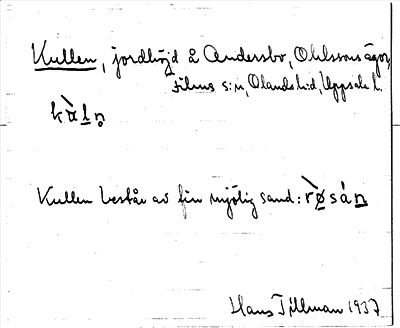 Kullen, jordhöjd å Andersbo, Ohlssons ägor,
Films s:n, Olands h:d, Uppsala l.
kàln̥
Kullen består av fin mjölig sand: rø̀sán
Hans Tillman 1937